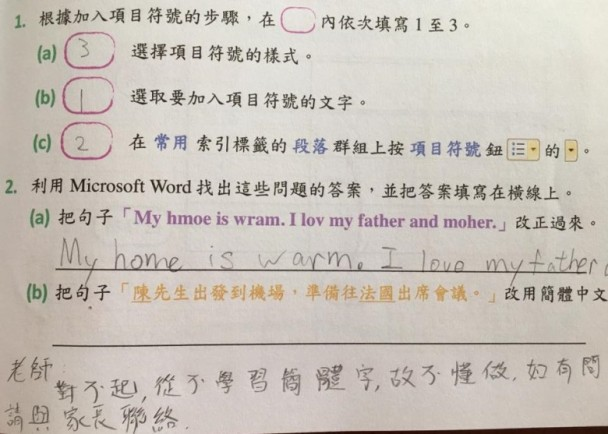 1. 根據加入項目符號的步驟,在 內依次填寫 1 至 3。
(a) 3 選擇項目符號的樣式。
(b) 1 選取要加入項目符號的文字。
(c) 2 在 常用 索引標籤的 段落 群組上按 項目符號 鈕 的 。
2. 利用 Microsoft Word 找出這些問題的答案,並把答案填寫在橫線上。
(a) 把句子「My hmoe is wram. I lov my father and moher.」改正過來。
My home is warm. I love my father
(b) 把句子「陳先生出發到機場,準備往法國出席會議。」改用簡體中文
老師
對不起,從不學習簡體字,故不懂做,如有問
請與家長聯絡.